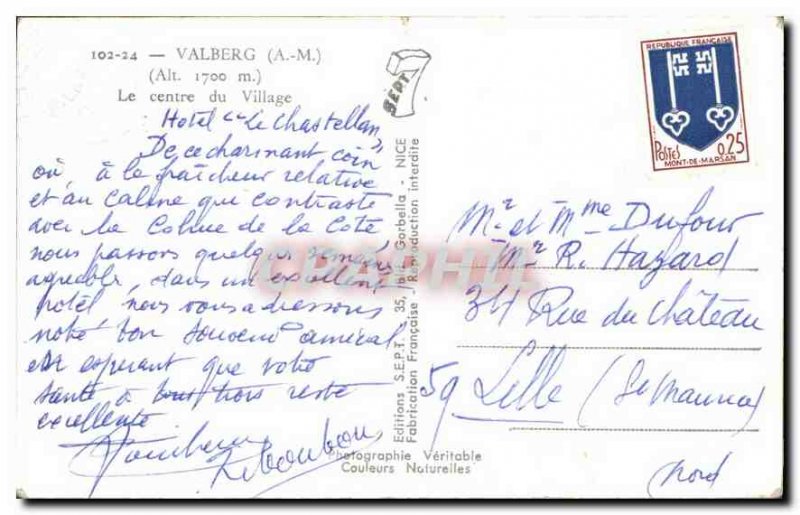 102-24 — VALBERG (A.-M.)
(Alt. 1700 m.)
Le centre du Village
Hotel "Le Chastellan"
De ce charmant coin
où, à la fraîcheur relative
et au calme qui contraste
avec la Cohue de la Côte
nous passons quelques semaines
agréables, dans un excellent
hotel nous vous adressons
notre bon souvenir amical
en esperant que votre
santé à tous trois reste
excellente.
SEPT
Editions S.E.P.T. - 35, Gorbella - NICE
Fabrication Française - Reproduction interdite
Photographie Véritable
Couleurs Naturelles
REPUBLIQUE FRANÇAISE
Postes 0,25
MONT-DE-MARSAN
Mr et Mme Dufour
Mr R. Hazard
34 Rue du Château
59 Lille (St Maurice)
Nord